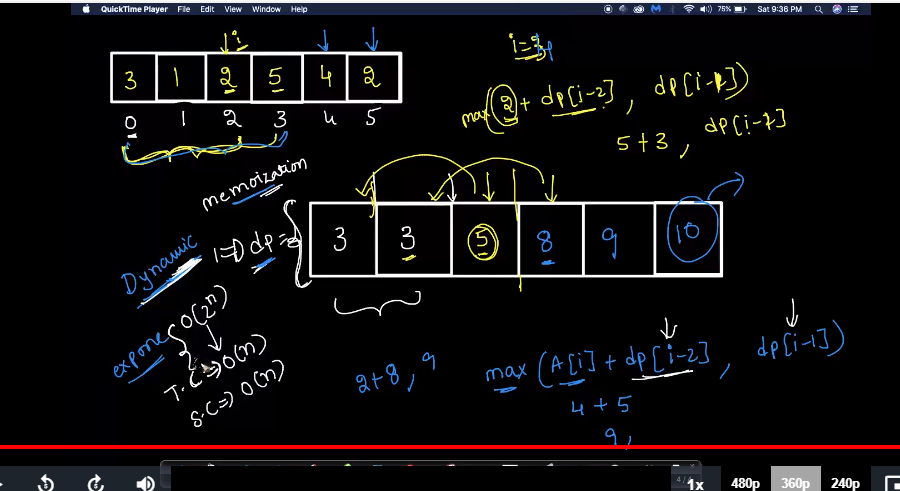 QuickTime Player File Edit View Window Help
75% Sat 9:36 PM
i
3 1 2 5 4 2
0 1 2 3 4 5
max(2 + dp[i-2], dp[i-1])
5+3, dp[i-1]
memoization
Dynamic
1-D dp =
3 3 5 8 9 10
expone
O(2^n)
T.C => O(n)
S.C => O(n)
max (A[i] + dp[i-2], dp[i-1])
2+8, 9
4 + 5
9,
1x 480p 360p 240p